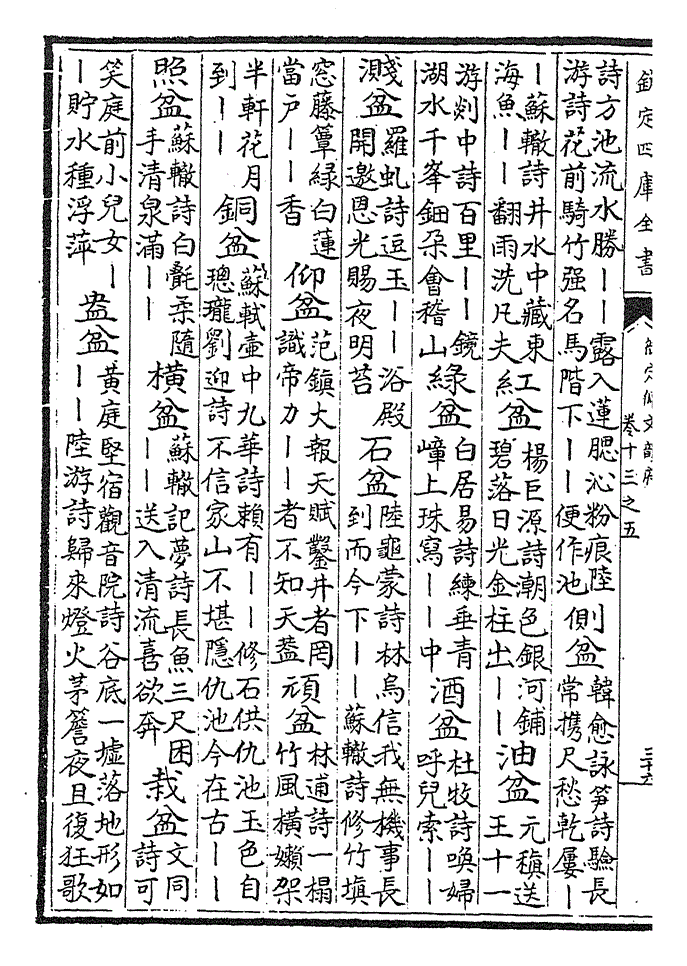 欽定四庫全書
御定佩文韻府
卷十三之五
三十六
詩方池流水勝——露入蓮腮沁粉痕陸
游詩花前騎竹强名馬階下——便作池
側盆
韓愈詠笋詩驗長
常携尺愁乾屢—
—蘇轍詩井水中藏東
海魚——翻雨洗凡夫
紅盆
楊巨源詩潮色銀河鋪
碧落日光金柱出——
油盆
元稹送
王十一
游剡中詩百里——鏡
湖水千峯鈿朶會稽山
綠盆
白居易詩練垂青
嶂上珠寫——中
酒盆
杜牧詩喚婦
呼兒索——
濺盆
羅虬詩逗玉——浴殿
開邀恩光賜夜明苔
石盆
陸龜蒙詩林烏信我無機事長
到而今下——蘇轍詩修竹塡
窓藤簟綠白蓮
當户——香
仰盆
范鎮大報天賦鑿井者罔
識帝力——者不知天蓋
頑盆
林逋詩一榻
竹風橫嬾架
半軒花月
到——
銅盆
蘇軾壺中九華詩賴有——修石供仇池玉色自
璁瓏劉迎詩不信家山不堪隱仇池今在古——
照盆
蘇轍詩白氎柔隨
手清泉滿——
橫盆
蘇轍記夢詩長魚三尺困
——送入清流喜欲奔
栽盆
文同
詩可
笑庭前小兒女—
—貯水種浮萍
盎盆
黃庭堅宿觀音院詩谷底一墟落地形如
——陸游詩歸來燈火茅簷夜且復狂歌